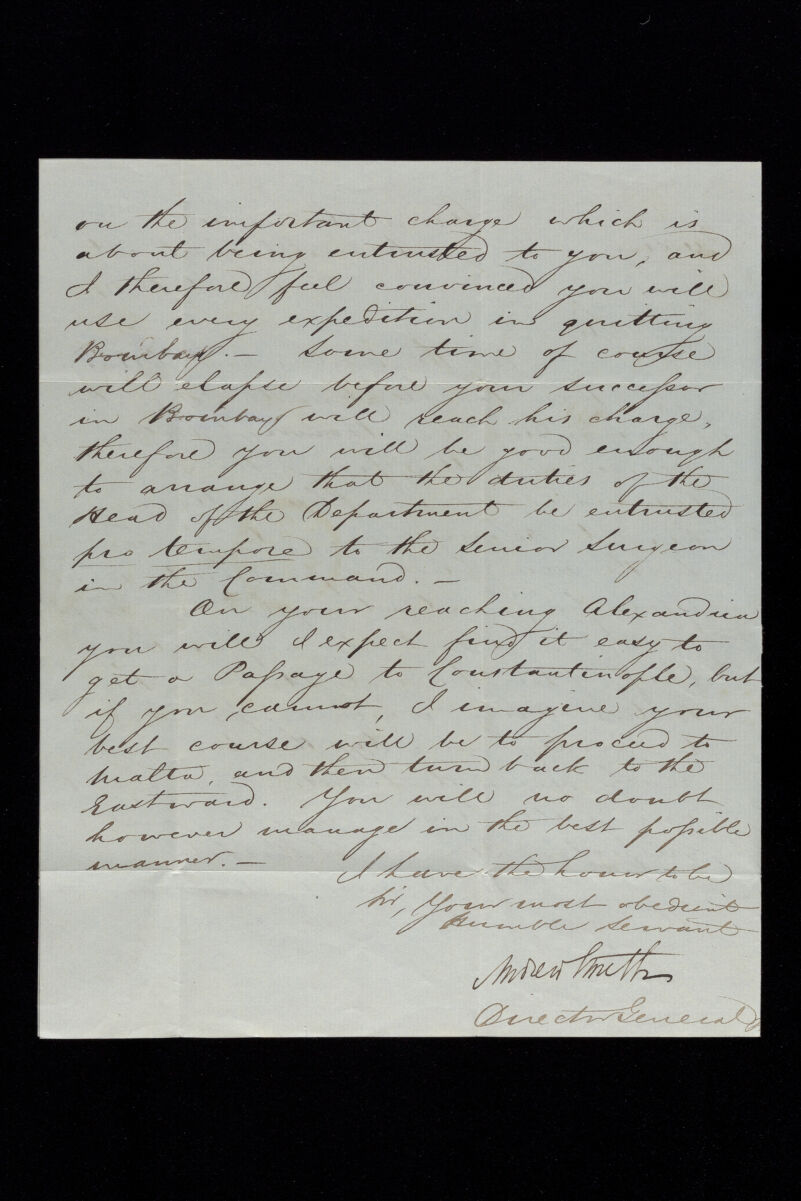 on the important charge which is
about being entrusted to you, and
I therefore feel convinced you will
use every expedition in quitting
Bombay. — Some time of course
will elapse before your successor
in Bombay will reach his charge,
therefore you will be good enough
to arrange that the duties of the
Head of the Department be entrusted
pro tempore to the Senior Surgeon
in the Command. —
On your reaching Alexandria
you will I expect find it easy to
get a Passage to Constantinople, but
if you cannot, I imagine your
best course will be to proceed to
Malta, and then turn back to the
Eastward. You will no doubt
however manage in the best possible
manner. — I have the honor to be
Sir, Your most obedient
Humble Servant
Andrew Smith
Director General